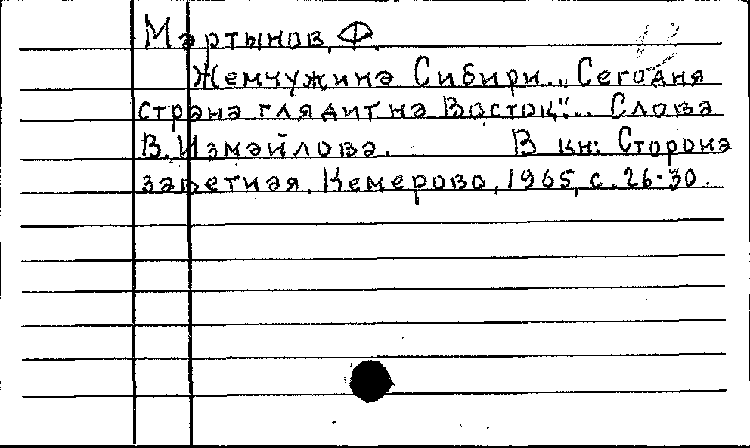 Мартынов, Ф.
Жемчужина Сибири. „Сегодня
страна глядит на Восток"... Слова
В. Измайлова. В кн: Сторона
заветная. Кемерово, 1965, с. 26-30.